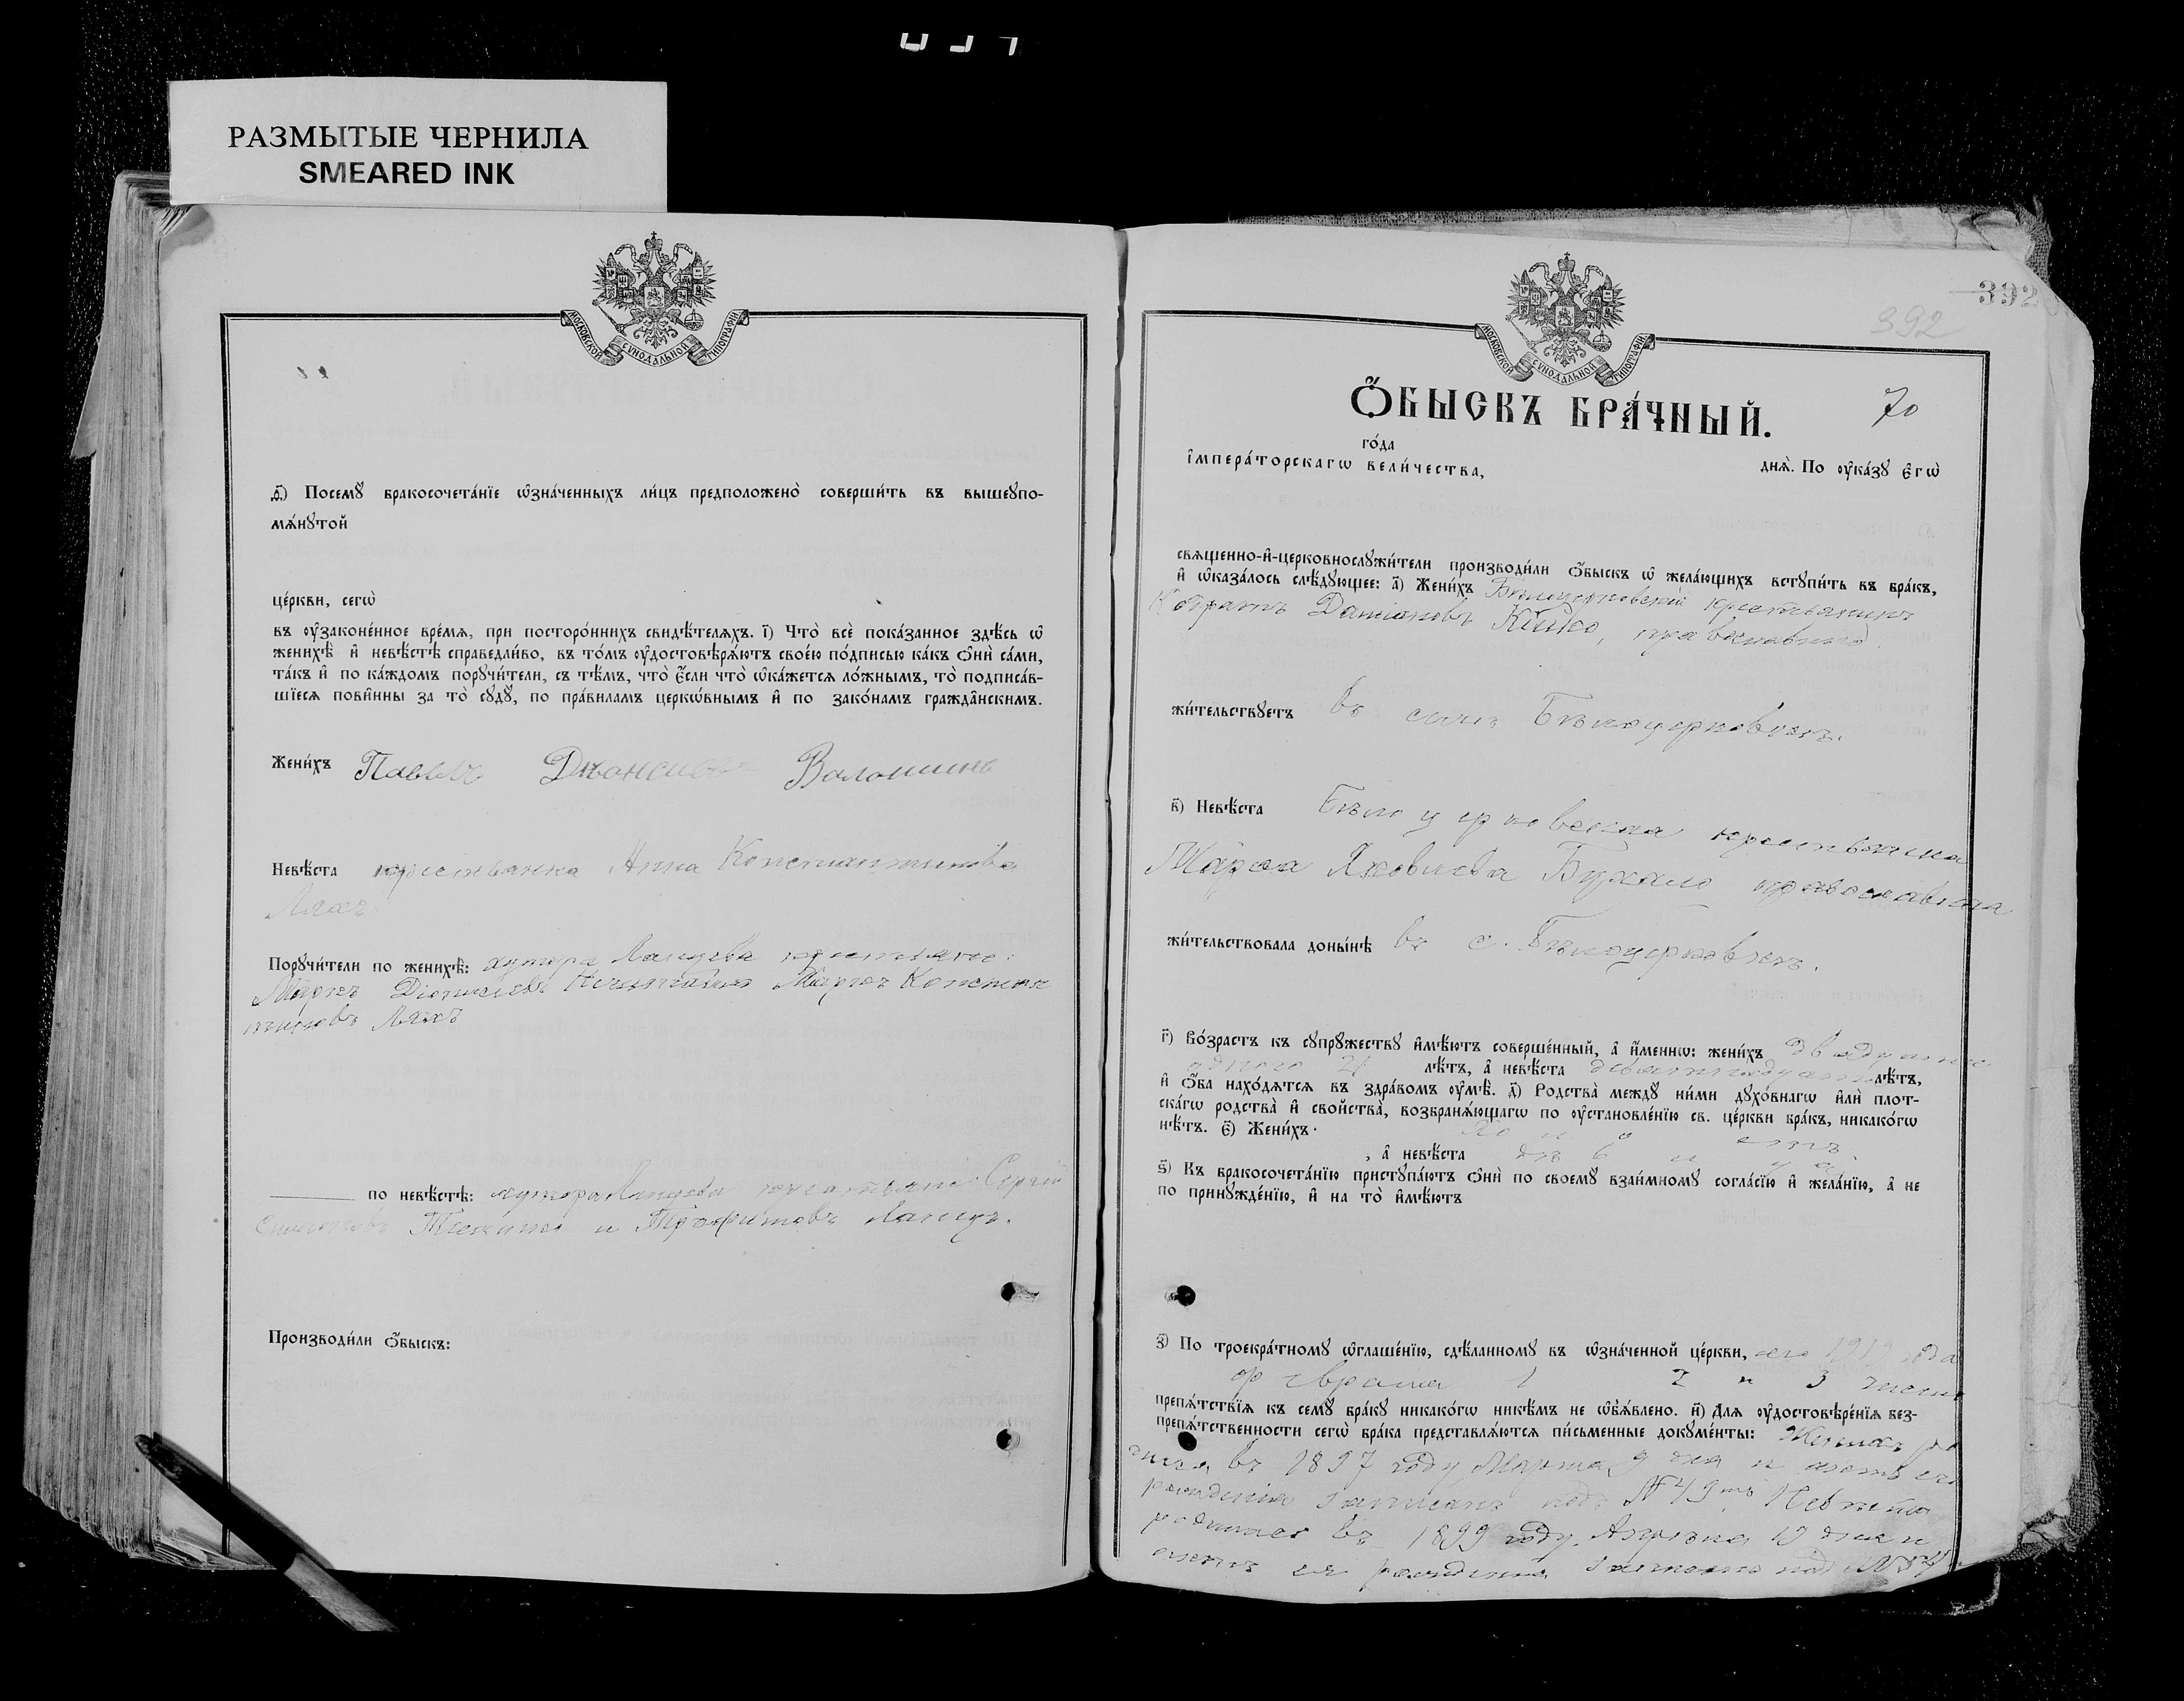 РАЗМЫТЫЕ ЧЕРНИЛА
SMEARED INK
МОСКОВСКОЙ СѴНОДАЛЬНОЙ ТИПОГРАФІИ
Посемꙋ̀ бракосочета́нїе ѡ҆зна́ченныхъ ли́цъ предположено̀ соверши́ть въ вышеꙋпо-
мѧ́нꙋтой
це́ркви, сегѡ̀
въ ᲂу҆законе́нное вре́мѧ, при посторо́ннихъ свидѣ́телѧхъ. і҃) Что̀ всѐ пока́занное здѣ́сь ѡ҆
женихѣ̀ и҆ невѣ́стѣ справедли́во, въ то́мъ ᲂу҆достовѣрѧ́ютъ свое́ю по́дписью ка́къ ѻ҆нѝ са́ми,
та́къ и҆ по ка́ждомъ порꙋчи́тели, съ тѣ́мъ, что̀ є҆́сли что̀ ѡ҆ка́жетсѧ ло́жнымъ, то̀ подписа́в-
шїесѧ пови́нны за то̀ сꙋдꙋ̀, по пра́виламъ церкѡ́внымъ и҆ по зако́намъ гражда́нскимъ.
Жени́хъ Павелъ Волошинъ
Невѣ́ста крестьянка Анна Константинова
Ляхъ
Порꙋчи́тели по женихѣ̀: хутора крестьяне:
Марко Діонисіевъ Марко Констан
тиновъ Ляхъ
по невѣ́стѣ: хутора крестьяне Сергій
и Трофимовъ
Производи́ли ѻ҆́быскъ:
392
392
МОСКОВСКОЙ СѴНОДАЛЬНОЙ ТИПОГРАФІИ
Ѻ҆́БЫСКЪ БРА́ЧНЫЙ.
70
го́да
днѧ̀. По ᲂу҆ка́зꙋ є҆гѡ̀
і҆мпера́торскагѡ вели́чества,
свѧщенно-и҆-церковнослꙋжи́тели производи́ли ѻ҆́быскъ ѡ҆ жела́ющихъ встꙋпи́ть въ бра́къ,
и҆ ѡ҆каза́лось слѣ́дꙋющее: а҃) Жени́хъ Бѣлоцерковскій крестьянинъ
Даміановъ православный
жи́тельствꙋетъ въ селѣ Бѣлоцерковкѣ.
в҃) Невѣ́ста Бѣлоцерковская крестьянка
Марѳа Яковлева Бухало православная
жи́тельствовала доны́нѣ въ с. Бѣлоцерковкѣ.
г҃) Во́зрастъ къ сꙋпрꙋ́жествꙋ и҆мѣ́ютъ соверше́нный, а҆ и҆́меннѡ: жени́хъ двадцать
одного 21 лѣ́тъ, а҆ невѣ́ста девятнадцати лѣ́тъ,
и҆ ѻ҆́ба нахо́дѧтсѧ въ здра́вомъ ᲂу҆мѣ̀. д҃) Родства̀ междꙋ ни́ми дꙋхо́внагѡ и҆лѝ плот-
ска́гѡ родства̀ и҆ свойства̀, возбранѧ́ющагѡ по ᲂу҆становле́нїю св. це́ркви бра́къ, никако́гѡ
нѣ́тъ. є҃) Жени́хъ холостъ
, а҆ невѣ́ста дѣвица
ѕ҃) Къ бракосочета́нїю пристꙋпа́ютъ ѻ҆нѝ по своемꙋ̀ взаи́мномꙋ согла́сїю и҆ жела́нїю, а҆ не
по принꙋжде́нїю, и҆ на то̀ и҆мѣ́ютъ
з҃) По троекра́тномꙋ ѡ҆глаше́нїю, сдѣ́ланномꙋ въ ѡ҆зна́ченной це́ркви, года
февраля 1 2 и 3 числа
препѧ́тствїѧ къ семꙋ̀ бра́кꙋ никако́гѡ никѣ́мъ не ѡ҆б̾ѧ́влено. и҃) Длѧ ᲂу҆достовѣре́нїѧ без-
препѧ́тственности сегѡ̀ бра́ка представлѧ́ютсѧ пи́сьменные докꙋме́нты: Женихъ ро
дился въ 1897 году Марта 9 дня и актъ его
рожденія записанъ подъ №49мъ Невѣста
родилась въ 1899 году, 19 дня и
актъ ея рожденія записанъ подъ №